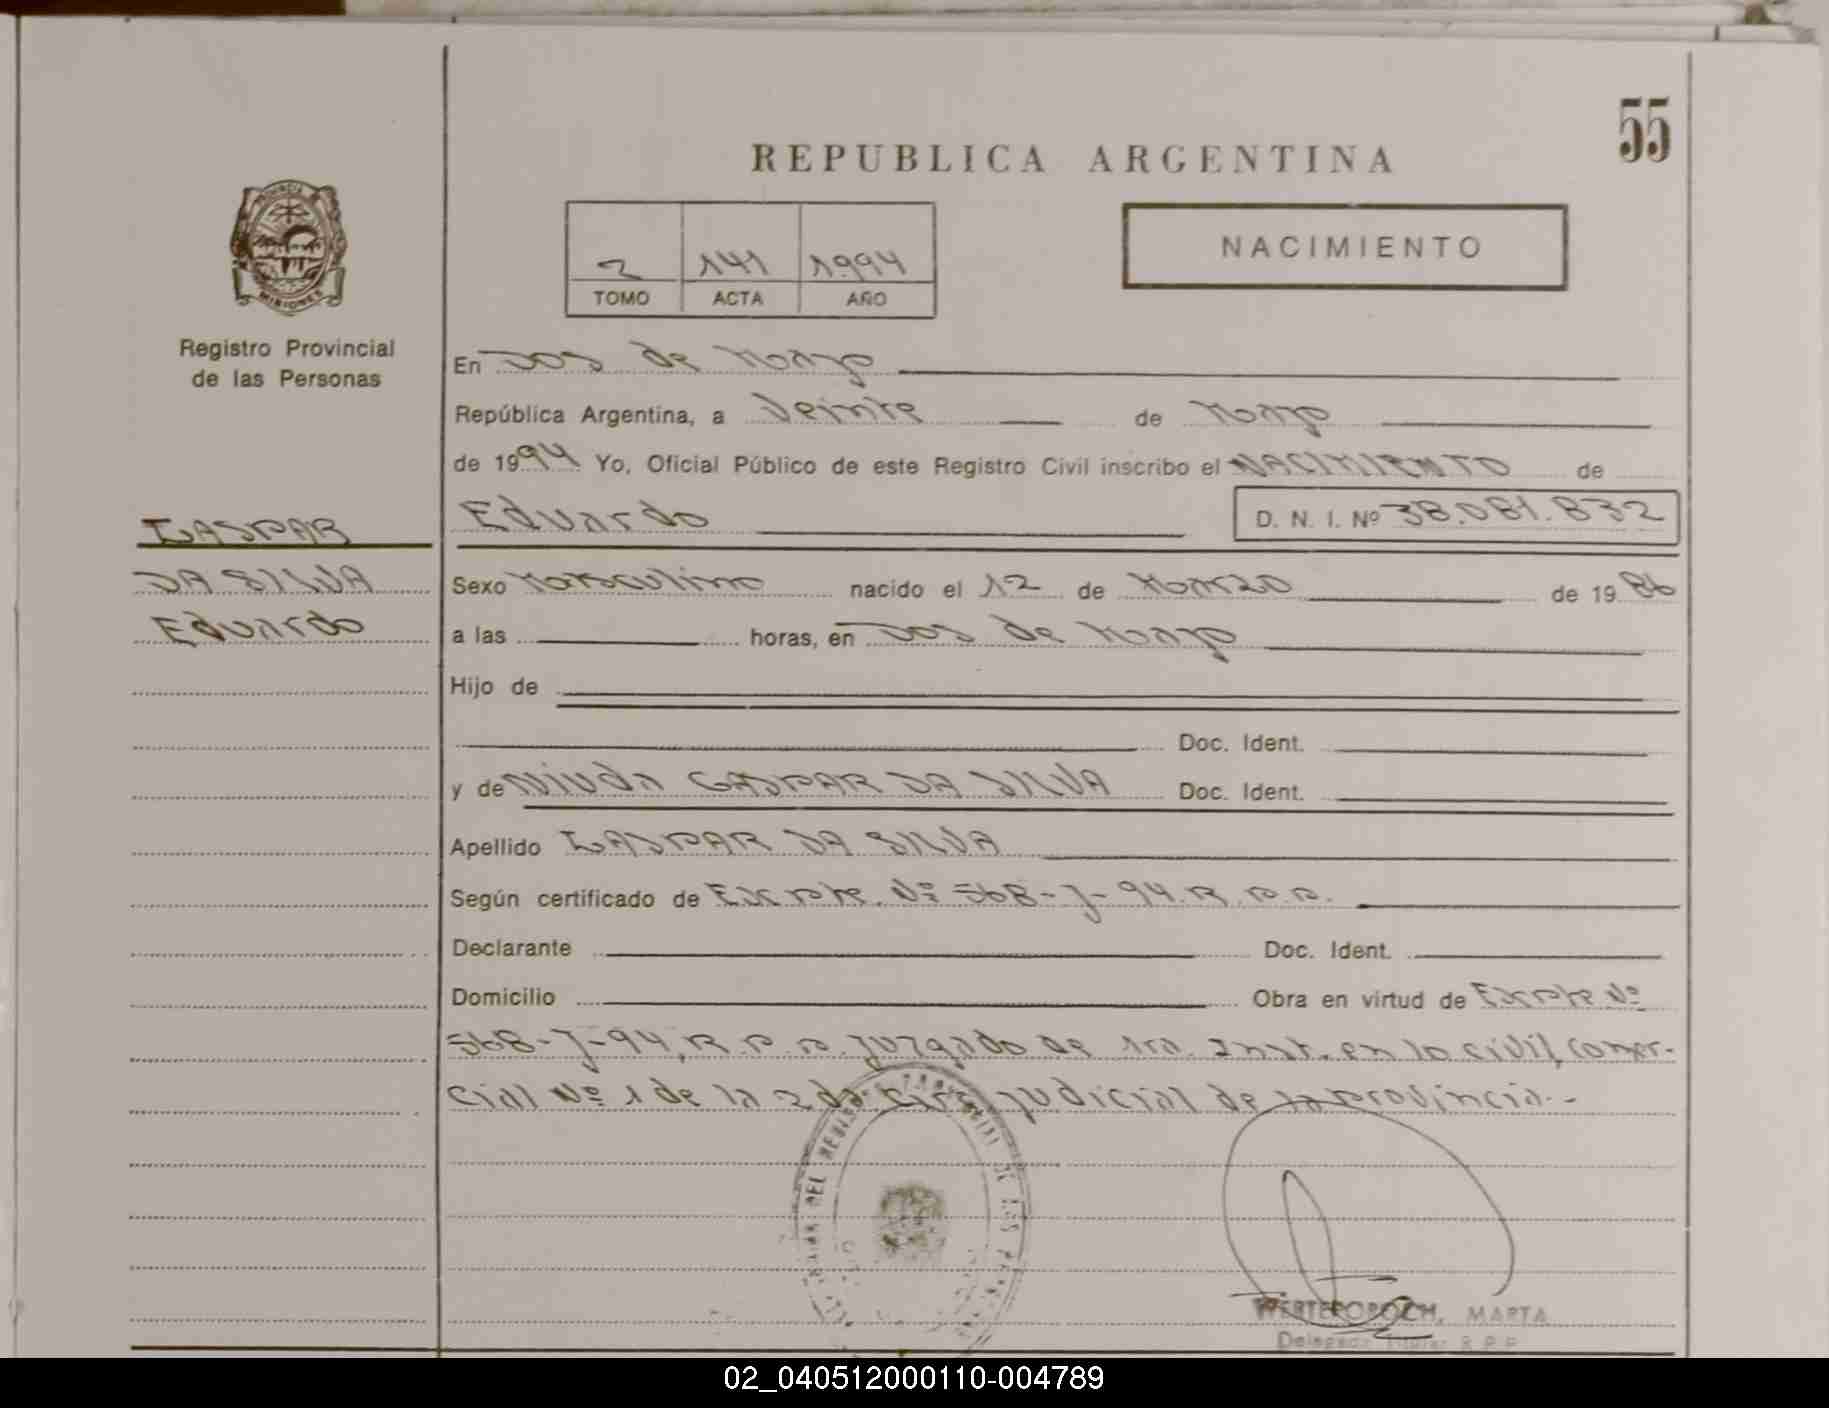 55
REPUBLICA ARGENTINA
NACIMIENTO
2 141 1994
TOMO ACTA AÑO
MISIONES
Registro Provincial
de las Personas
En Dos de Mayo
República Argentina, a Veinte de Marzo
de 1994 Yo, Oficial Público de este Registro Civil inscribo el NACIMIENTO de
GASPAR
DA SILVA
Eduardo
Eduardo D. N. I. Nº 38.081.832
Sexo Masculino nacido el 12 de Marzo de 1986
a las horas, en Dos de Mayo
Hijo de
Doc. Ident.
y de GASPAR DA SILVA Doc. Ident.
Apellido GASPAR DA SILVA
Según certificado de Expte. Nº 568-J-94.R.P.P.
Declarante Doc. Ident.
Domicilio Obra en virtud de Expte Nº
568-J-94, R.P.P. Juzgado de 1ra. Inst. en lo civil, comer-
cial Nº 1 de la 2da. Circ. judicial de la provincia.-
WERTEROROCH, MARTA
Delegada Titular R.P.P.
02_040512000110-004789